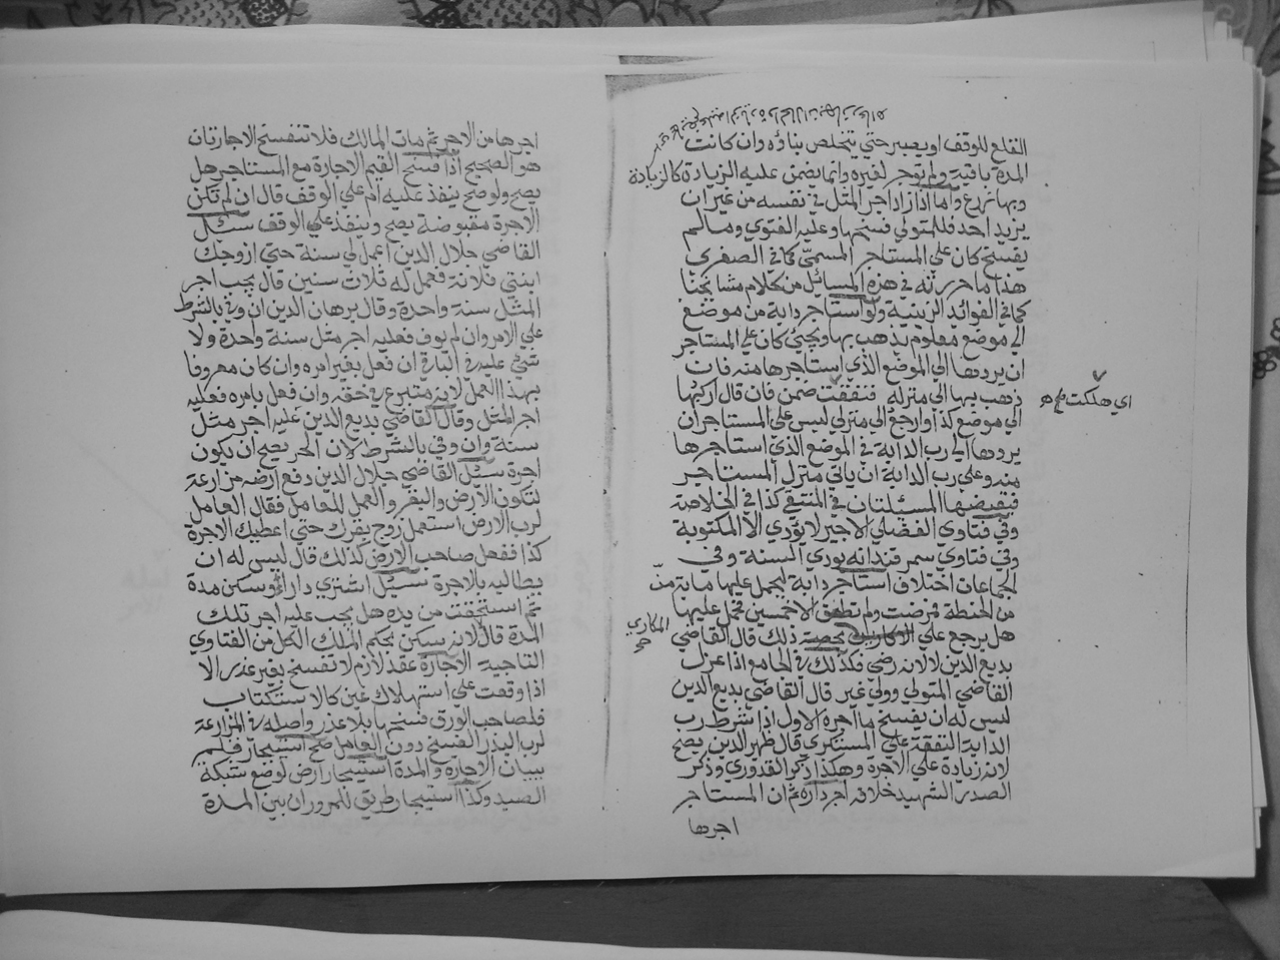 القلع للوقف او يصبر حتي يتخلص بناؤه وان كانت
المدة باقية ولم توجر لغيره وانما يضمن عليه الزيادة كالزيادة
وبها نرخ واما اذا زاد اجر المثل في نفسه من غير ان
يزيد احد فللمتولي فسخها وعليه الفتوي وما لم
يفسخ كان علي المستاجر المسمي كما في الصغري
هذا ما حررته في هذه المسائل من كلام مشايخنا
كما في الفوائد الزينية ولو استاجر دابة من موضع
الي موضع معلوم يذهب بها ويجيئ كان علي المستاجر
ان يردها الي الموضع الذي استاجرها منه فان
ذهب بها الي منزله فنفقت ضمن فان قال اركبها
الي موضع كذا وارجع الي منزلي ليس علي المستاجر ان
يردها الي رب الدابة في الموضع الذي استاجرها
منه وعلي رب الدابة ان ياتي منزل المستاجر
فيقبضها المسئلتان في المنتقي كذا في الخلاصة
وفي فتاوي الفضلي الاجير لا يؤدي الا المكتوبة
وفي فتاوي سمرقند انه يودي السنة وفي
اختلاف استاجر دابة ليحمل عليها مائة منّ
من الحنطة فمرضت ولم تطق الا خمسين فحمل عليها
هل يرجع علي بحصة ذلك قال القاضي
المكاري
بديع الدين لا لانه رضي فكذلك في الجامع اذا عزل
القاضي المتولي وولي غير قال القاضي بديع الدين
ليس له ان يفسخ ما اجره الاول اذا شرط رب
الدابة النفقة علي المستكري قال ظهير الدين يصح
لانه زيادة علي الاجرة وهكذا ذكر القدوري وذكر
الصدر الشهيد خلافه اجر داره ثم ان المستاجر
اجرها
اي هلكت
اجرها من الاجر ثم مات المالك فلا تنفسخ الاجارتان
هو الصحيح اذا فسخ القيم الاجارة مع المستاجر هل
يصح ولو صح ينفذ عليه ام علي الوقف قال ان لم تكن
الاجرة مقبوضة يصح وينفذ علي الوقف سئل
القاضي جلال الدين اعمل لي سنة حتي ازوجك
ابنتي فلانة فعمل له ثلاث سنين قال يجب اجر
المثل سنة واحدة وقال برهان الدين ان وفي بالشرط
علي الامر وان لم يوف فعليه اجر مثل سنة واحدة ولا
شئ عليه في الباقي ان فعل بغير امره وان كان معروفا
بهذا العمل لانه متبرع في حقه وان فعل بامره فعليه
اجر المثل وقال القاضي بديع الدين عليه اجر مثل
سنة وان وفي بالشرط لان الحر يصح ان يكون
اجرة سئل القاضي جلال الدين دفع ارضه مزارعة
لتكون الارض والبقر والعمل للعامل فقال العامل
لرب الارض استعمل زوج بقرك حتي اعطيك الاجرة
كذا ففعل صاحب الارض كذلك قال ليس له ان
يطالبه بالاجرة سئل اشتري دارا وسكن مدة
ثم استحقت من يده هل يجب عليه اجر تلك
المدة قال لا لانه سكن بحكم الملك الكل من الفتاوي
التاجية الاجارة عقد لازم لا تفسخ بغير عذر الا
اذا وقعت علي استهلاك عين كالاستكتاب
فلصاحب الورق فسخها بلا عذر واصله في المزارعة
لرب البذر الفسخ دون العامل صح استيجار قلم
ببيان الاجارة والمدة استيجار ارض لوضع شبكة
الصيد وكذا استيجار طريق للمرور ان بين المدة